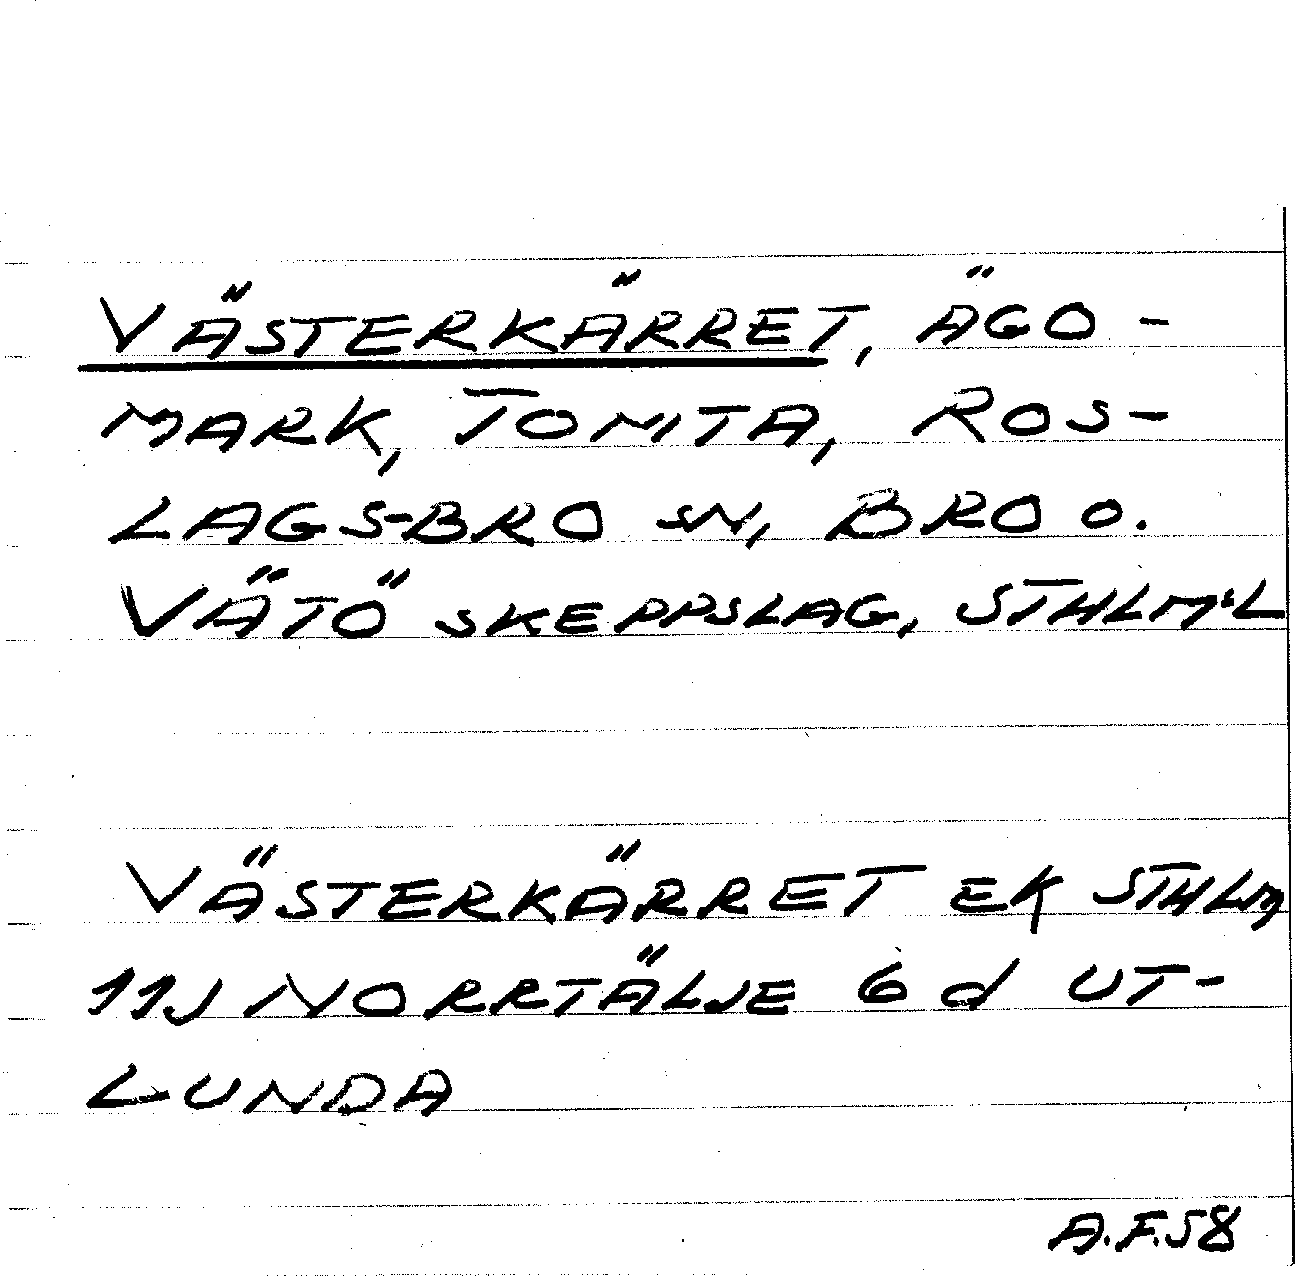 VÄSTERKÄRRET, ÄGO-
MARK, TOMTA, ROS-
LAGS-BRO SN, BRO O.
VÄTÖ SKEPPSLAG, STHLM:L
VÄSTERKÄRRET EK STHLM
11J NORRTÄLJE 6 d UT-
LUNDA
A.F.58